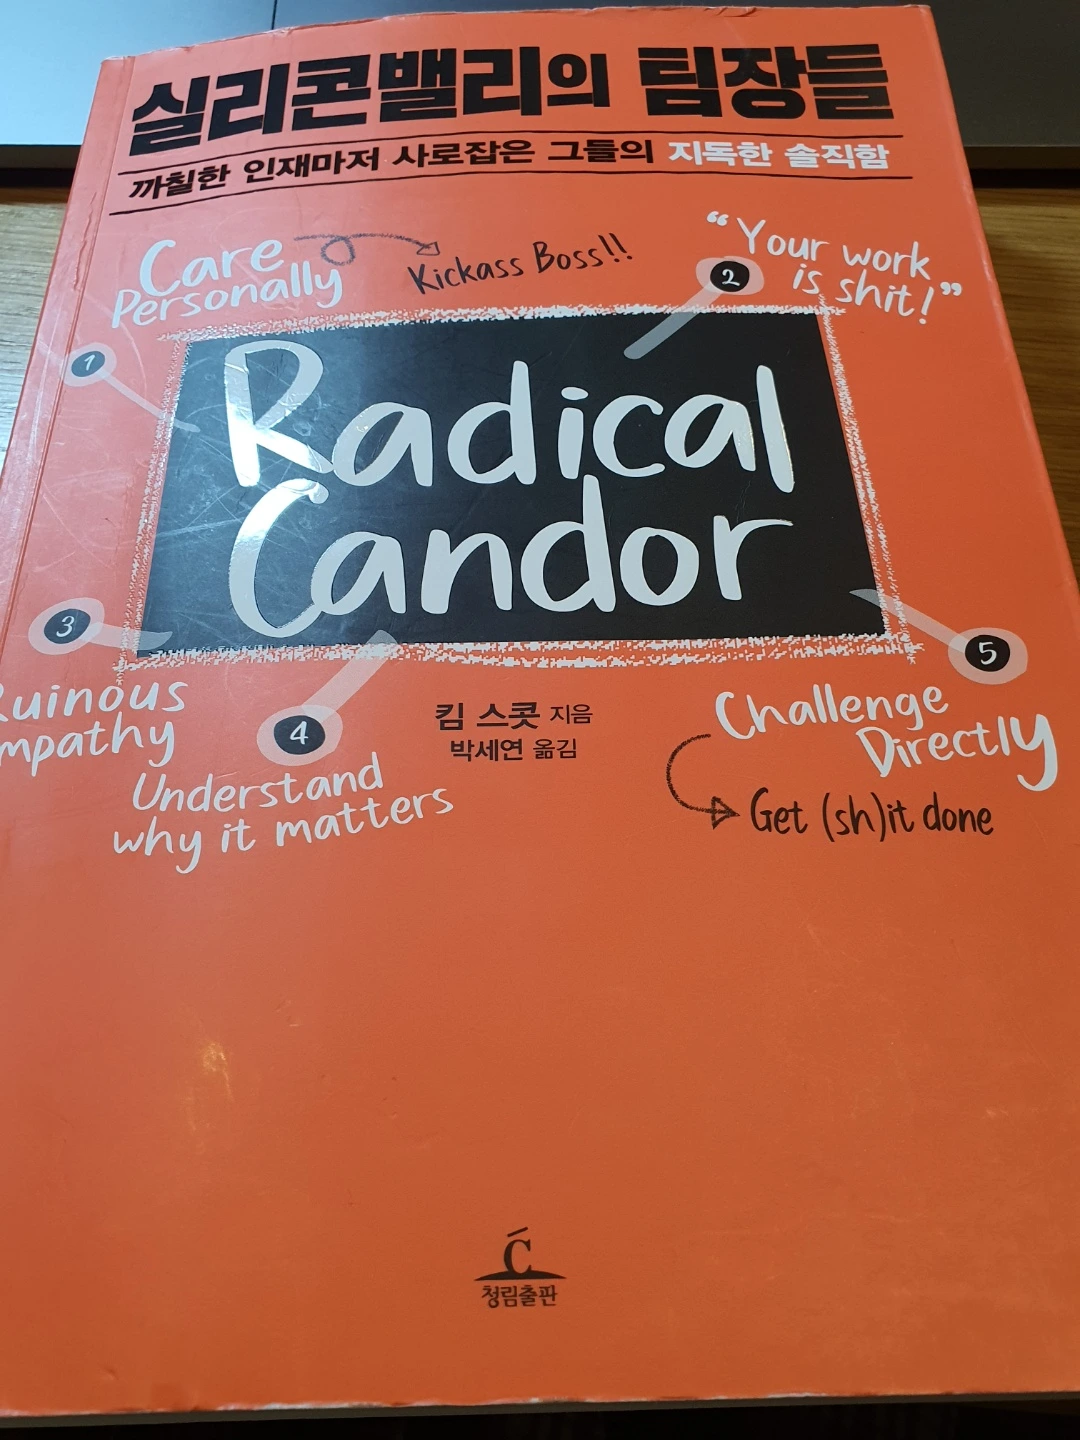 실리콘밸리의 팀장들
까칠한 인재마저 사로잡은 그들의 지독한 솔직함
Care
Personally
Kickass Boss!!
"Your work
is shit!"
1
2
Radical
Candor
3
Ruinous
Empathy
4
Understand
why it matters
킴 스콧 지음
박세연 옮김
5
Challenge
Directly
Get (sh)it done
C
청림출판